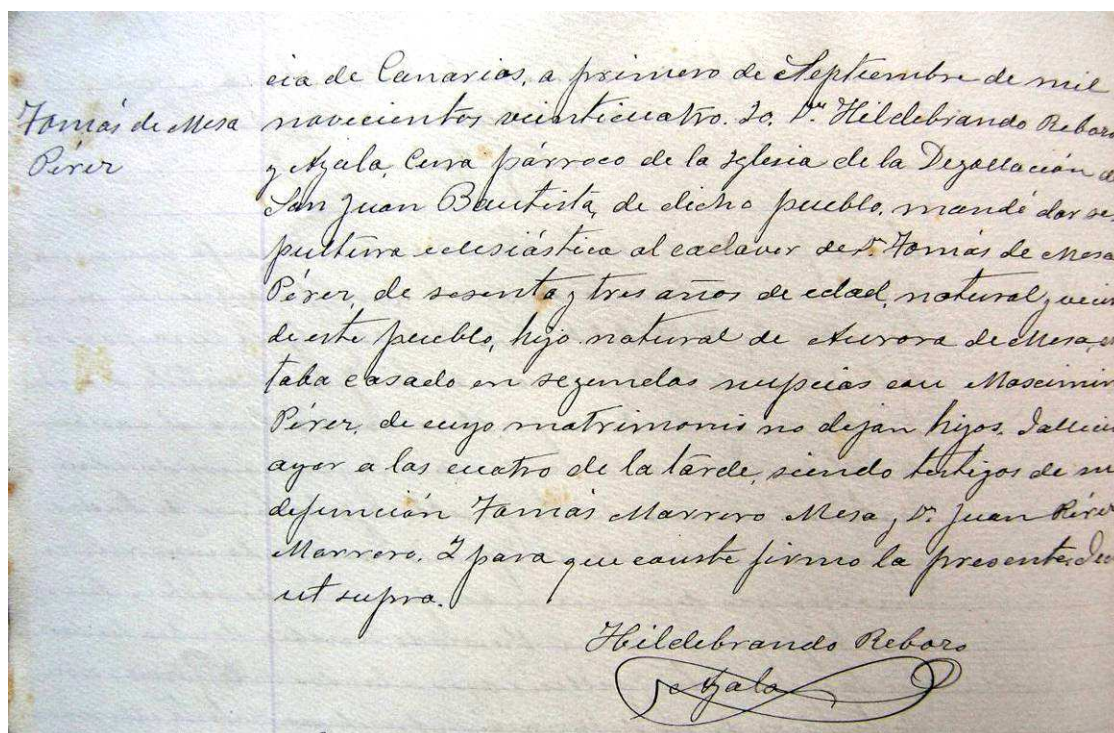 Tomás de Mesa
Pérez
cia de Canarias, a primero de Septiembre de mil
novecientos veinticuatro. Yo, Dn. Hildebrando Reboro
y Ayala, Cura párroco de la Iglesia de la Degollación d
San Juan Bautista, de dicho pueblo, mandé dar se
pultura eclesiástica al cadaver de Dn. Tomás de Mesa
Pérez, de sesenta y tres años de edad, natural y vecin
de este pueblo, hijo natural de Aurora de Mesa, es
taba casado en segundas nupcias con Maximin
Pérez, de cuyo matrimonio no dejan hijos. Falleció
ayer a las cuatro de la tarde, siendo testigos de su
defunción Tomás Marrero Mesa y D. Juan Pérez
Marrero. Y para que conste firmo la presente
ut supra.
Hildebrando Reboro
y Ayala